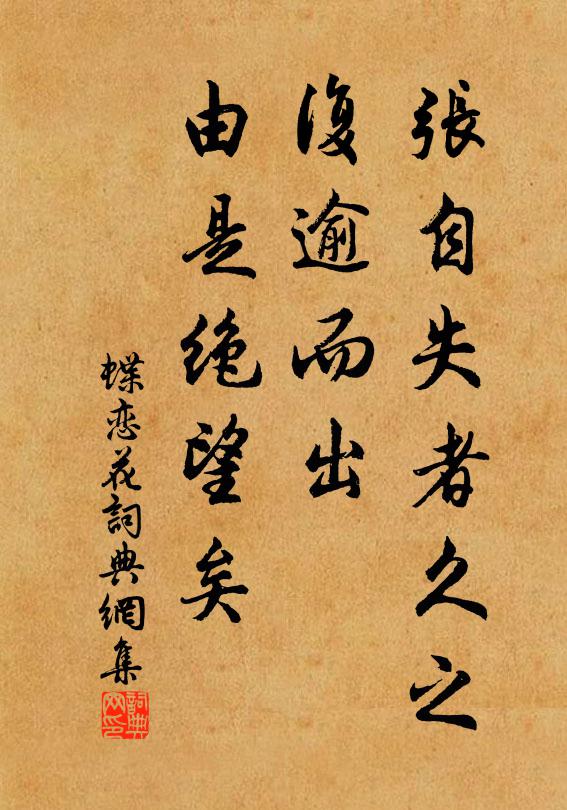 張自失者久之
復逾而出
由是绝望矣
蝶恋花詞典網集
詞典
网印